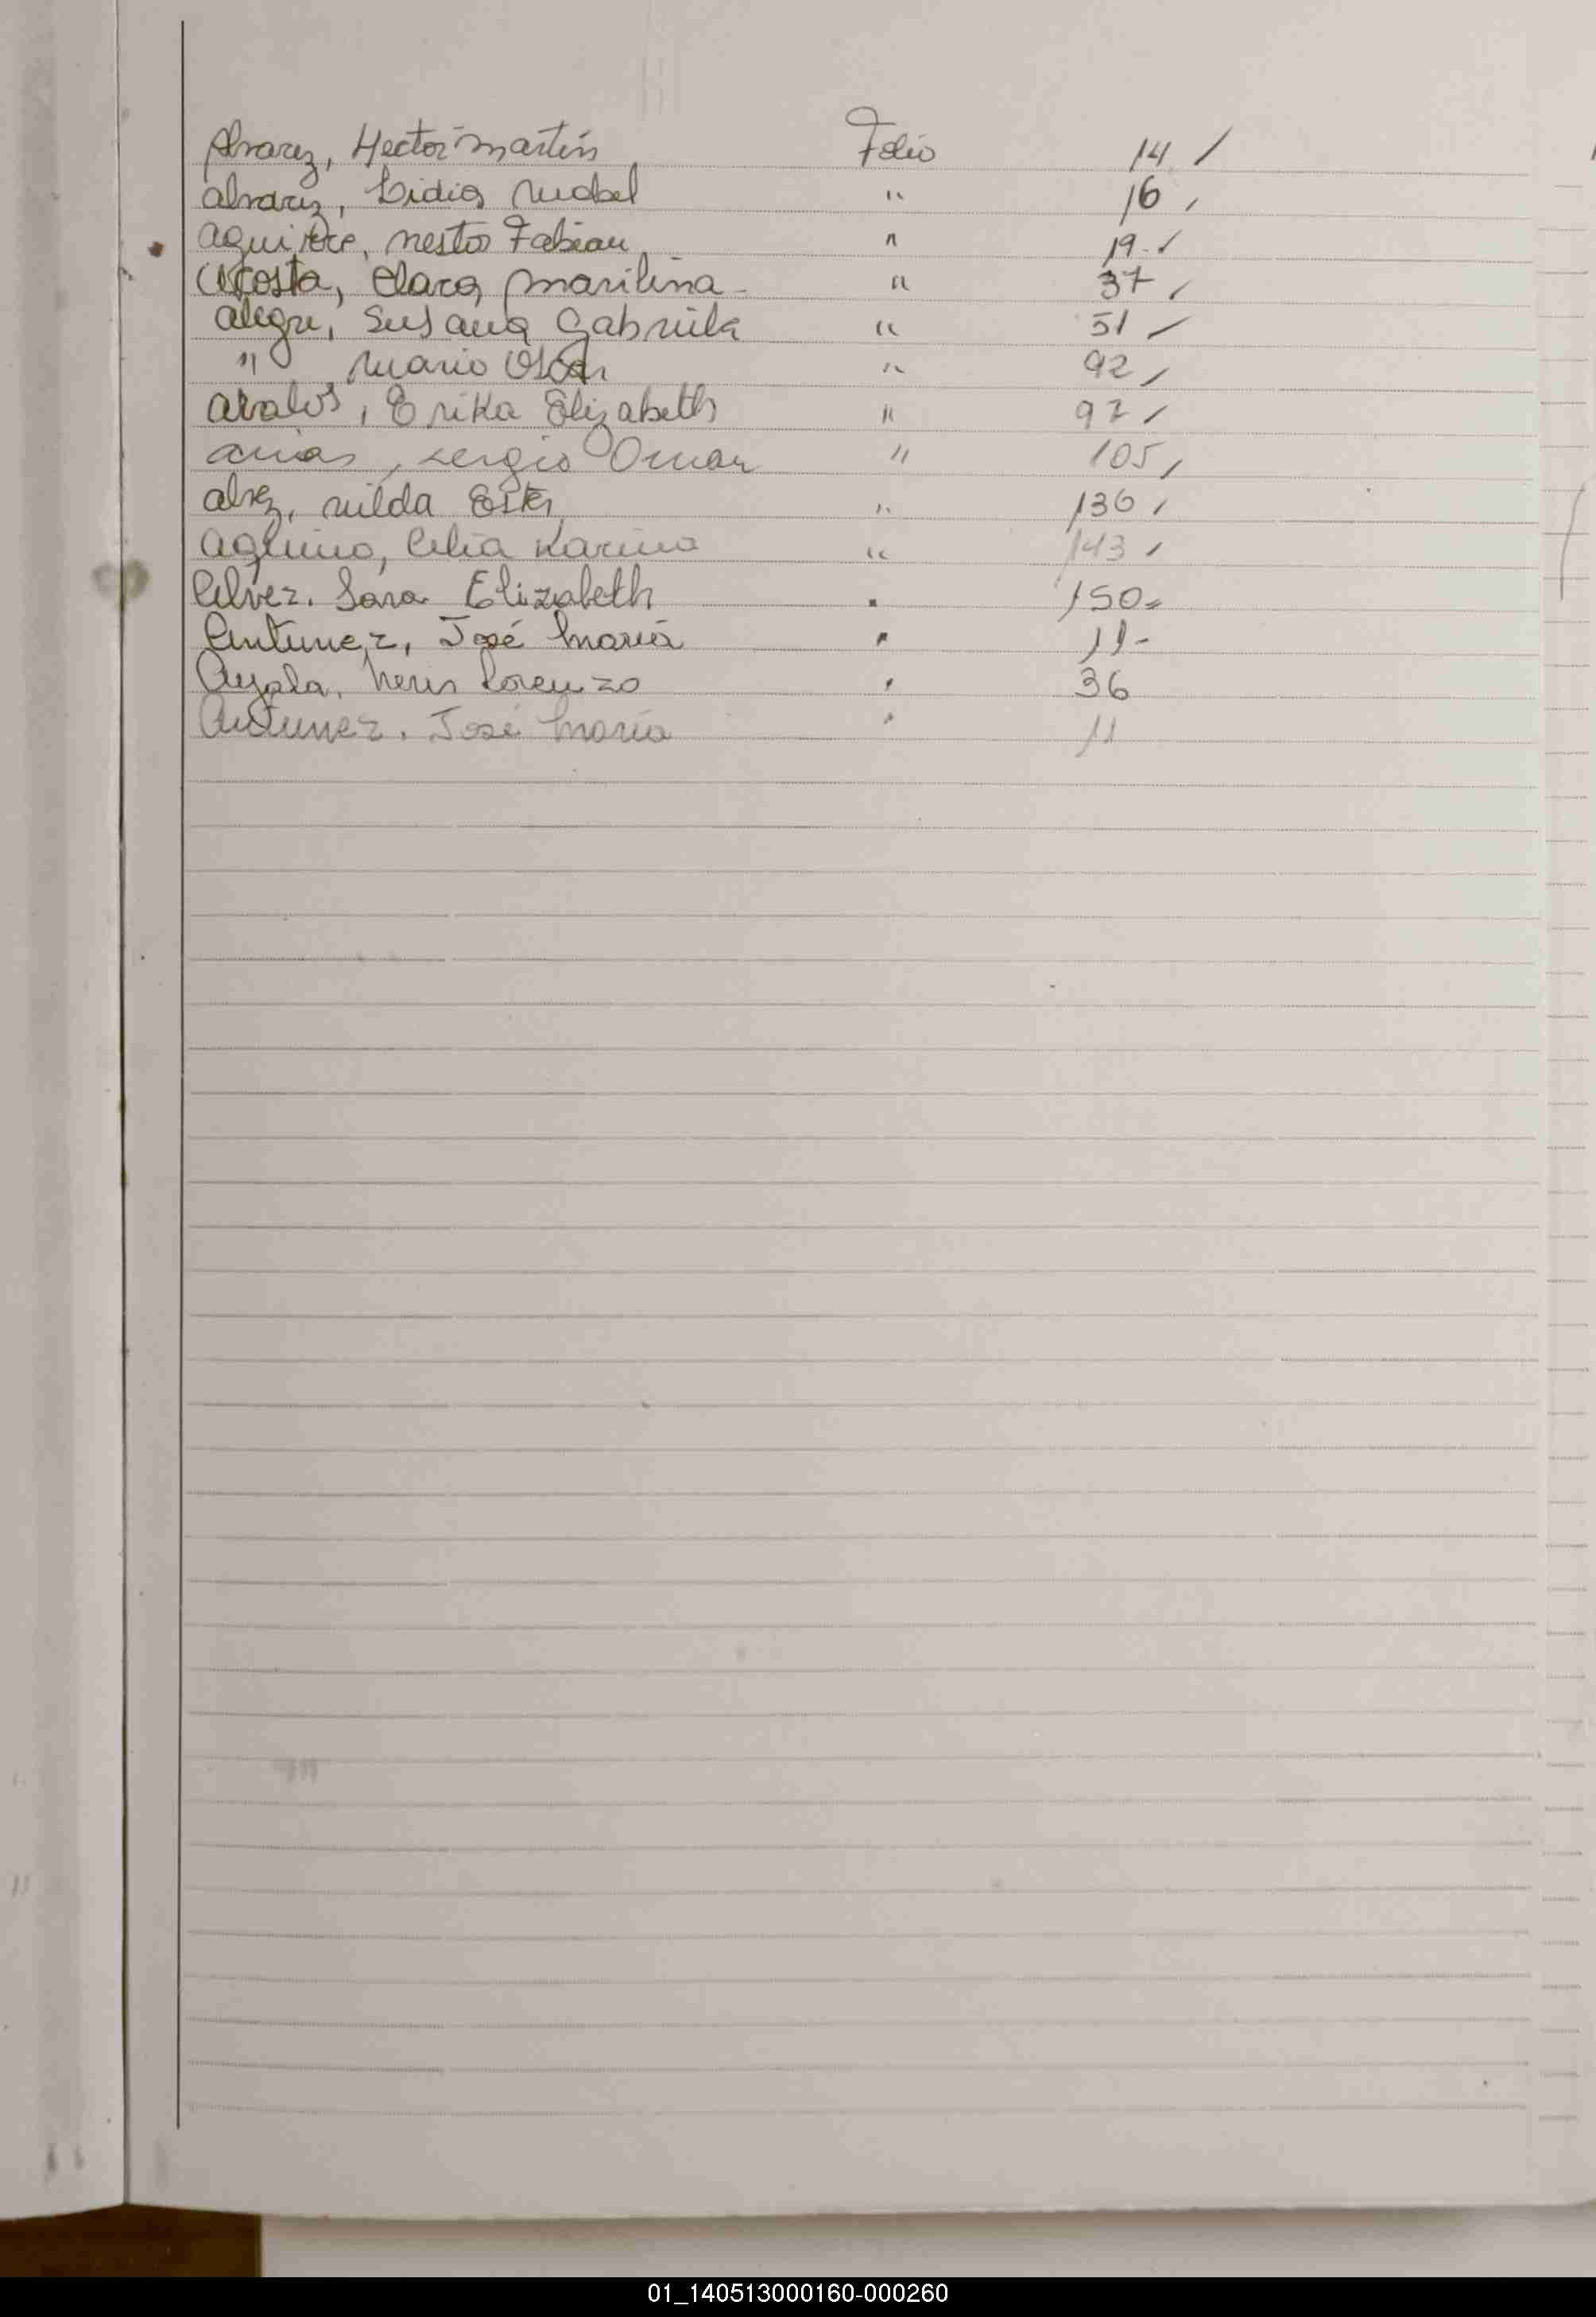 Alvarez, Hector Martín Folio 14 /
Alvarez, Lidia Mabel " 16 ,
Aguirre, Nestor Fabian " 19 - /
Acosta, Clara Marilina - " 37 ,
Alegre, Susana Gabriela " 51 /
" Mario Oscar " 92 /
Avalos, Erika Elizabeth " 97 /
Arias, Sergio Omar " 105 ,
Alvez, Nilda Ester " 130 ,
Aquino, Celia Karina " 143 /
Alvez. Sara Elizabeth " 150 =
Antunez, José María " 11 -
Ayala, Lorenzo " 36
Antunez. José María " 11
01_140513000160-000260